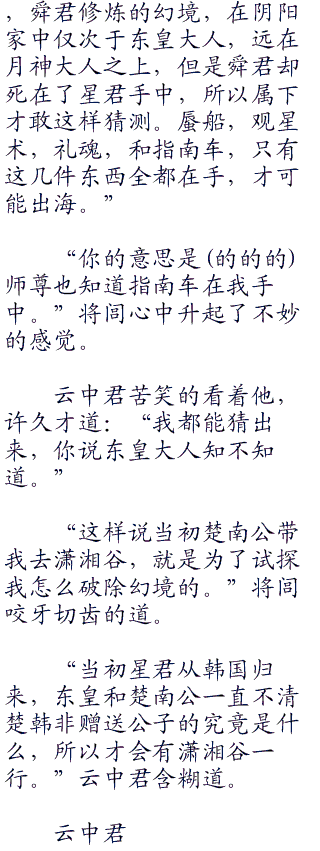 ，舜君修炼的幻境，在阴阳
家中仅次于东皇大人，远在
月神大人之上，但是舜君却
死在了星君手中，所以属下
才敢这样猜测。蜃船，观星
术，礼魂，和指南车，只有
这几件东西全都在手，才可
能出海。”
“你的意思是(的的的)
师尊也知道指南车在我手
中。”将闾心中升起了不妙
的感觉。
云中君苦笑的看着他，
许久才道：“我都能猜出
来，你说东皇大人知不知
道。”
“这样说当初楚南公带
我去潇湘谷，就是为了试探
我怎么破除幻境的。”将闾
咬牙切齿的道。
“当初星君从韩国归
来，东皇和楚南公一直不清
楚韩非赠送公子的究竟是什
么，所以才会有潇湘谷一
行。”云中君含糊道。
云中君